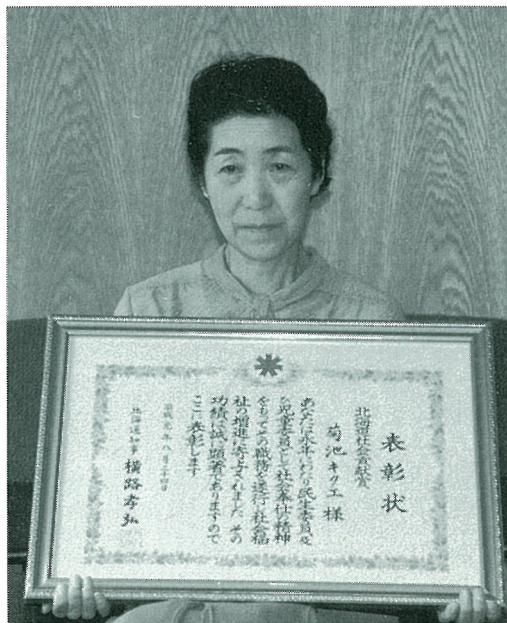 表彰状
北海道社会貢献賞
菊池キクエ 様
あなたは永年にわたり民生委員及
び児童委員として社会奉仕の精神
をもってこの職務を遂行し社会福
祉の増進に寄与されました その
功績は誠に顕著でありますので
ここに表彰します
年八月二十四日
北海道知事 横路孝弘